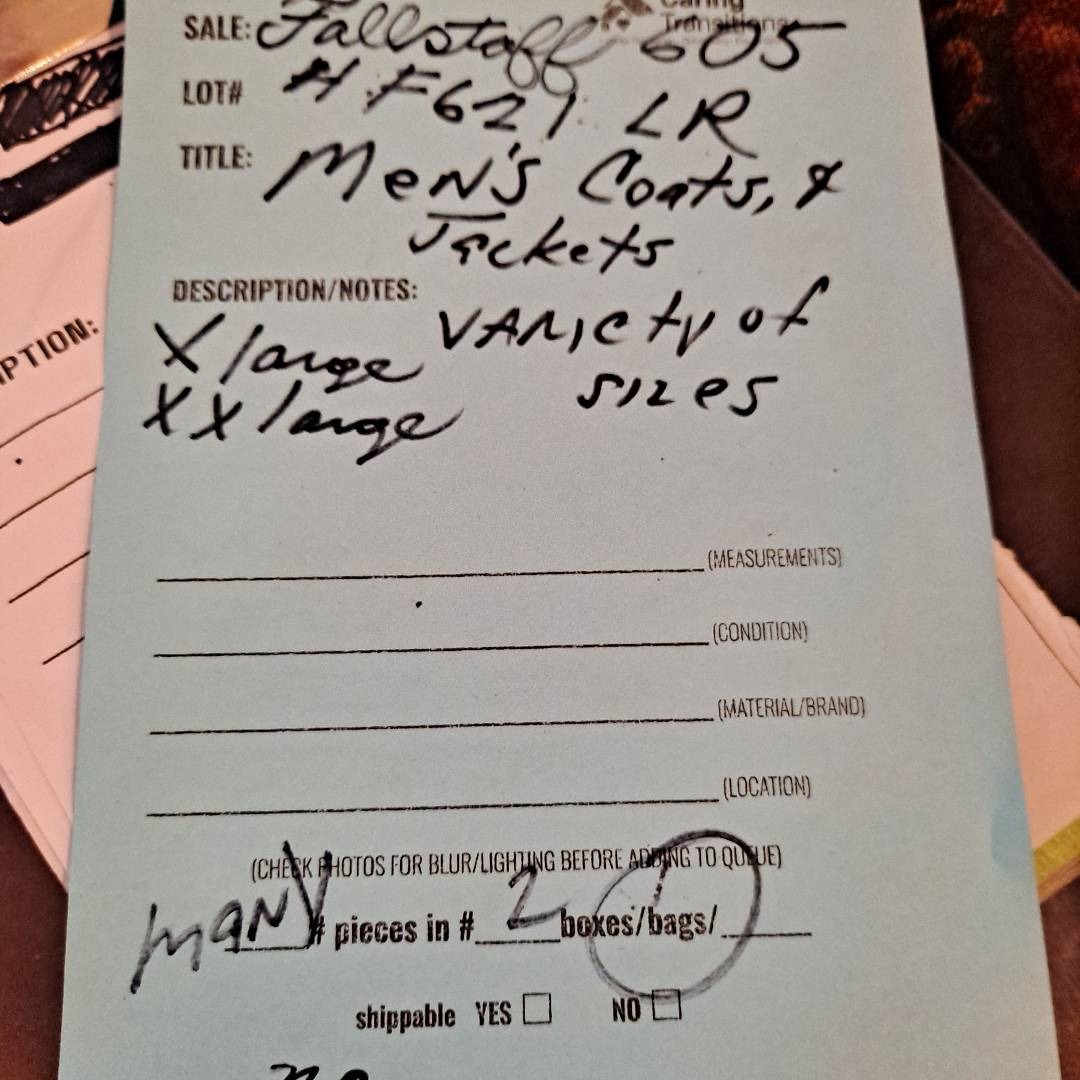 Caring
Transitions
SALE: Fallstaff 605
LOT# HF621 LR
TITLE: Men's Coats, &
Jackets
DESCRIPTION/NOTES:
X large variety of
XX large sizes
PTION:
(MEASUREMENTS)
(CONDITION)
(MATERIAL/BRAND)
(LOCATION)
(CHECK PHOTOS FOR BLUR/LIGHTING BEFORE ADDING TO QUEUE)
many # pieces in # 2 boxes/bags/
shippable YES NO